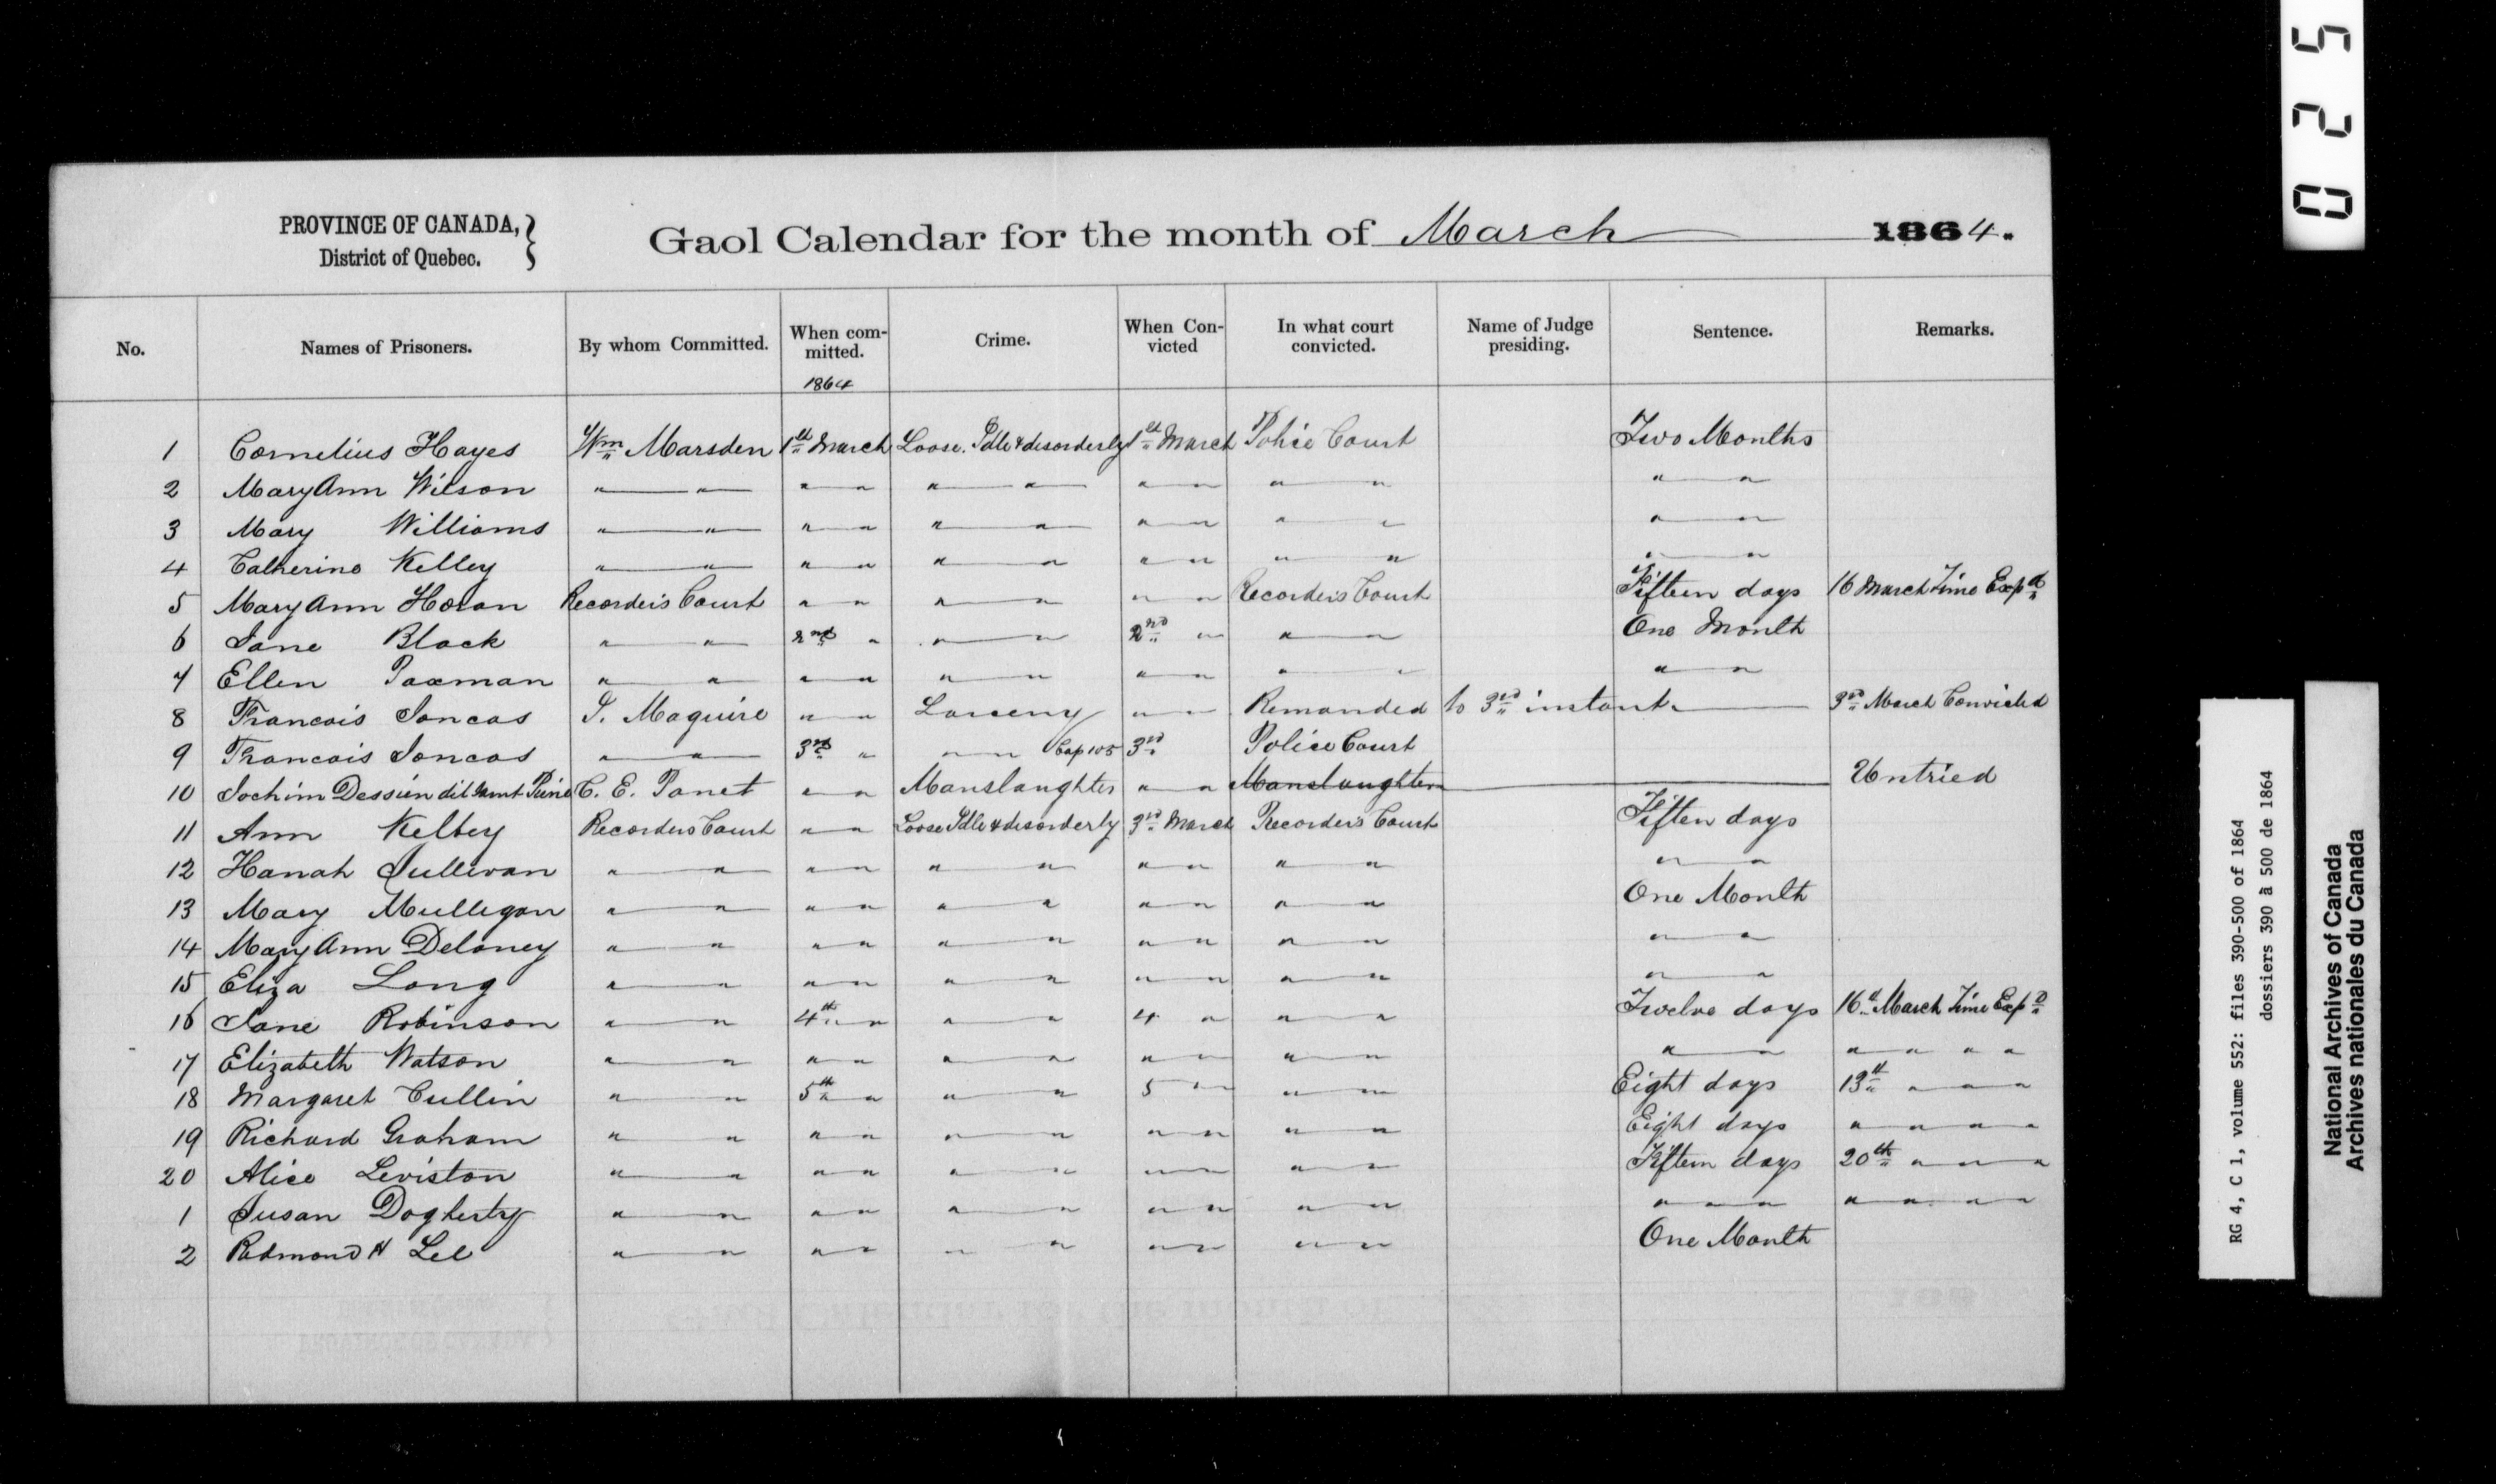 PROVINCE OF CANADA,
District of Quebec.
Gaol Calendar for the month of March 1864.
No. Names of Prisoners. By whom Committed. When committed. Crime. When Convicted In what court convicted. Name of Judge presiding. Sentence. Remarks.
1864
1 Cornelius Hayes Wm Marsden 1st March Loose. Idle & disorderly 1st March Police Court Two Months
2 Mary Ann Wilson " " " " " " " " " " " "
3 Mary Williams " " " " " " " " " " " "
4 Catherine Kelley " " " " " " " " " " " "
5 Mary Ann Horan Recorder's Court " " " " " " Recorder's Court Fifteen days 16 March Time Expd
6 Jane Black " " 2nd " " " 2nd " " " One Month
7 Ellen Paxman " " " " " " " " " " " "
8 Francois Joncas J. Maguire " " Larceny " " Remanded to 3rd instant 3rd March Convicted
9 Francois Joncas " " 3rd " " " Cap 105 3rd Police Court
10 Jochim Dessien dit C. E. Panet " " Manslaughter " " Manslaughter Untried
11 Ann Kelley Recorders Court " " Loose Idle & disorderly 3rd March Recorder's Court Fiften days
12 Hanah Sullivan " " " " " " " " " " " "
13 Mary Mulligan " " " " " " " " " " One Month
14 Mary Ann Delaney " " " " " " " " " " " "
15 Eliza Long " " " " " " " " " " " "
16 Jane Robinson " " 4th " " " " 4 " " " Twelve days 16th March Time Expd
17 Elizabeth Watson " " " " " " " " " " " " " " " "
18 Margaret Cullin " " 5th " " " " 5 " " " Eight days 13th " " "
19 Richard Graham " " " " " " " " " " Eight days " " " "
20 Alice Leviston " " " " " " " " " " Fiftem days 20th " " "
1 Susan Dogherty " " " " " " " " " " " " " " " " "
2 Redmond H Lee " " " " " " " " " " One Month
025
RG 4, C 1, volume 552: files 390-500 of 1864
dossiers 390 à 500 de 1864
National Archives of Canada
Archives nationales du Canada